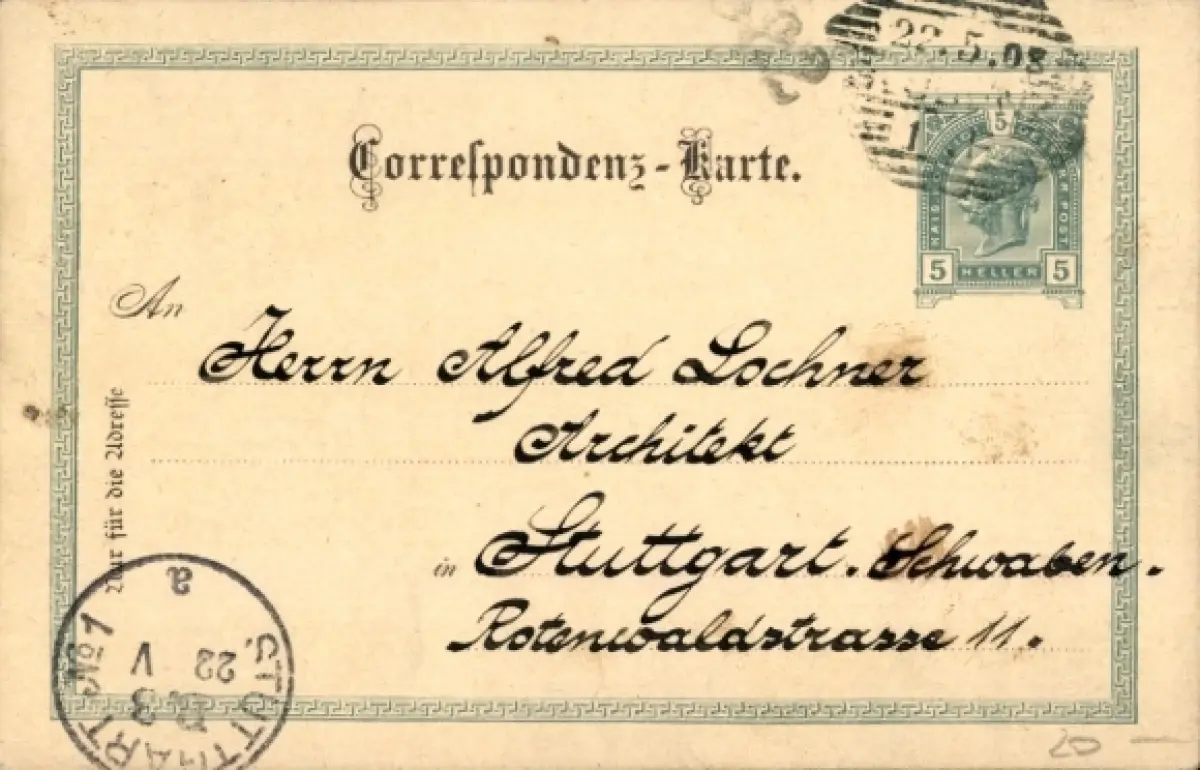 22.5.08
Correspondenz-Karte.
5
KAIS. POST
5 HELLER 5
An
Herrn Alfred Lochner
Architekt
in Stuttgart. Schwaben.
Rotenwaldstrasse 11.
Nur für die Adresse
STUTTGART No 1
22 V
a
20